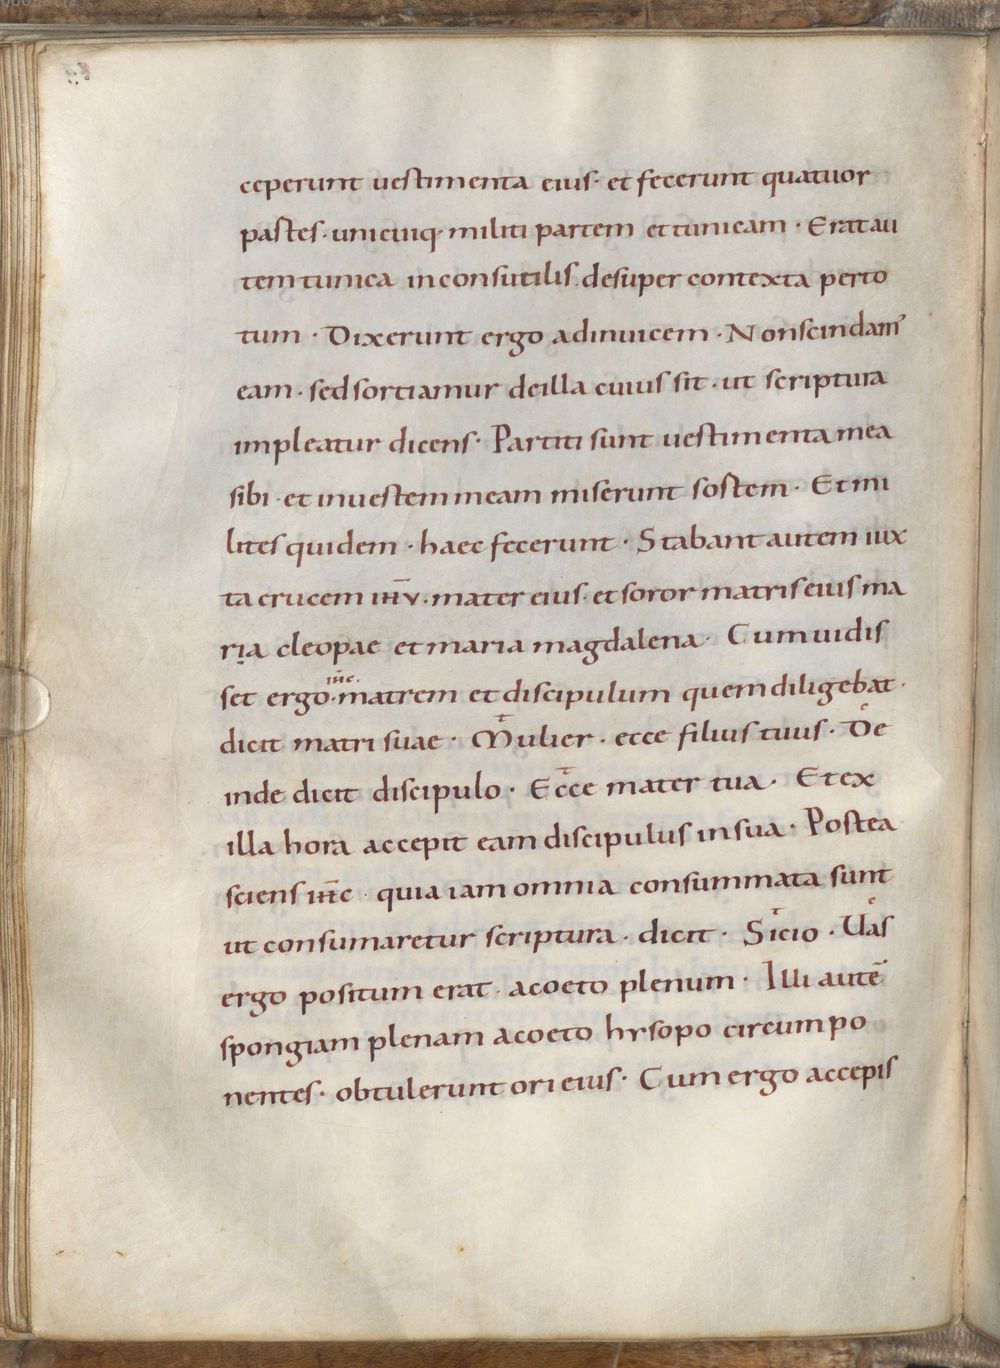 ceperunt uestimenta eius· et fecerunt quatuor
pastes· unicuiq· militi partem et tunicam · Erat au
tem tunica inconsutilis desuper contexta perto
tum · Dixerunt ergo adinuicem · Non scindam᾽
eam · sed sortiamur deilla cuius sit · ut scriptura
impleatur dicens· Partiti sunt uestimenta mea
sibi · et inuestem meam miserunt sostem · Et mi
lites quidem · haec fecerunt · Stabant autem iux
ta crucem iħ̅v · mater eius· et soror matris eius ma
ria cleopae et maria magdalena · Cum uidis
set ergo · iħ̅c · matrem et discipulum quem diligebat ·
dicit matri suae · Mulier · ecce filius tuus · De
inde dicit discipulo · Ecce mater tua · Et ex
illa hora accepit eam discipulus insua · Postea
sciens iħ̅c · quia iam omnia consummata sunt
ut consumaretur scriptura · dicit · Sicio · Uas
ergo positum erat · acoeto plenum · Illi autē
spongiam plenam acoeto hysopo circumpo
nentes · obtulerunt ori eius · Cum ergo accepis